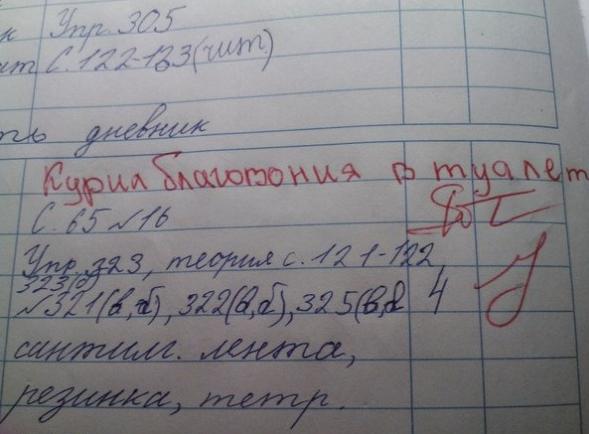 к Упр. 305
ит С. 122-123 (чит.)
ть дневник
Курил благовония в туалет
С. 65 №16
Упр. 323, теория с. 121-122
323(б)
№321(в,б), 322(в,б), 325(в,б 4
сантим. лента,
резинка, тетр.